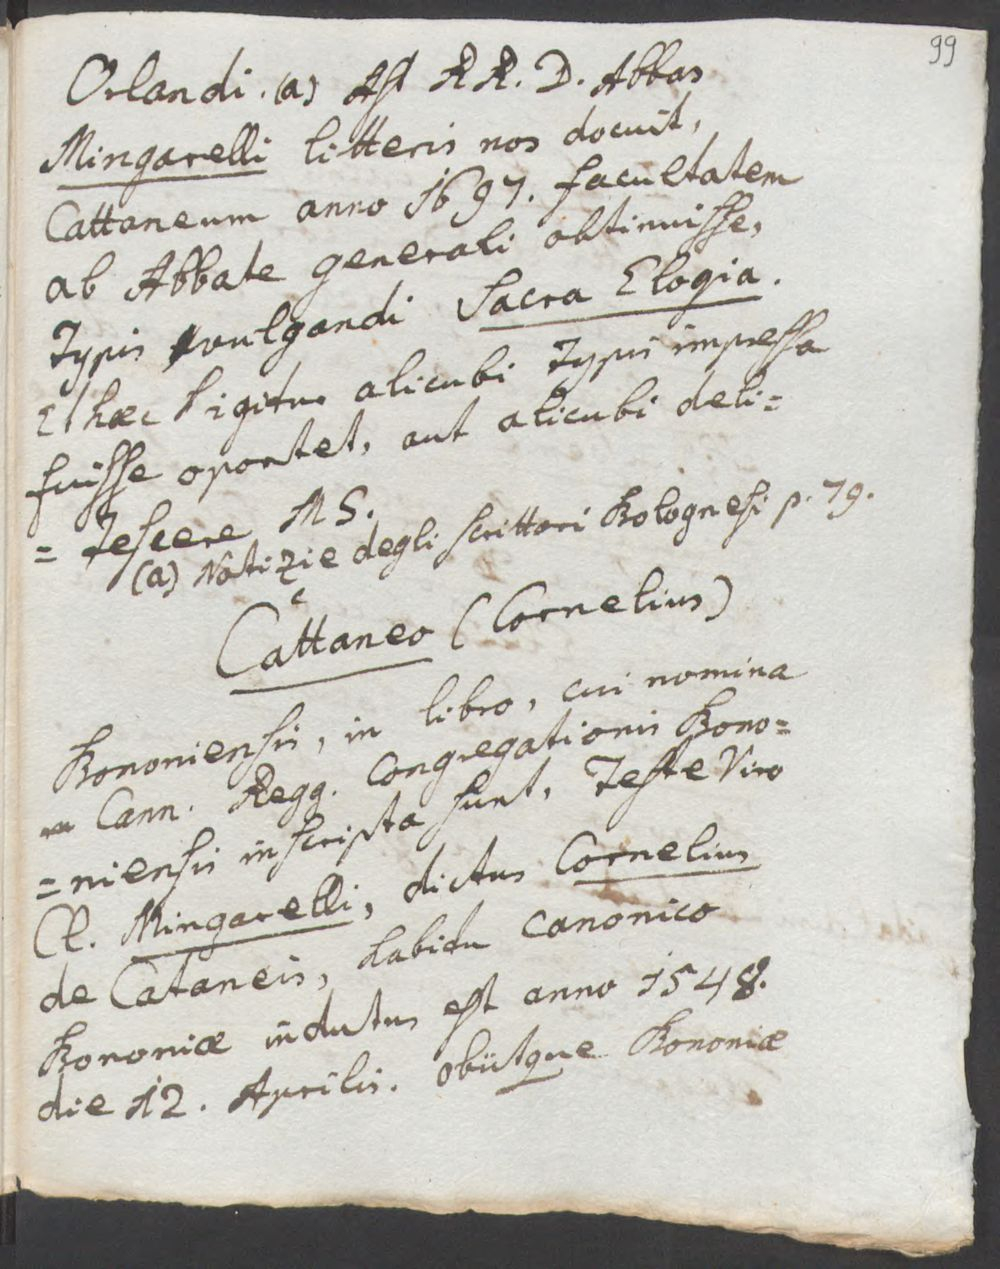 99
Orlandi. (a) Ast RR. D. Abbas
Mingarelli litteris nos docuit,
Cattaneum anno 1697. facultatem
ab Abbate generali obtinuisse,
Typis vulgandi Sacra Elogia.
Et hæc igitur alicubi Typis impressa
fuisse oportet, aut alicubi deli=
=tescere MS.
(a) Notizie degli scrittori Bolognesi p. 79.
Cattaneo (Cornelius)
Bononiensis, in libro, cui nomina
Cann. Regg. Congregationis Bono=
=niensis inscripta sunt, Teste Viro
Cl. Mingarelli, dictus Cornelius
de Cataneis, habitu canonico
Bononiæ indutus est anno 1548.
die 12. Aprilis. obiitque Bononiæ